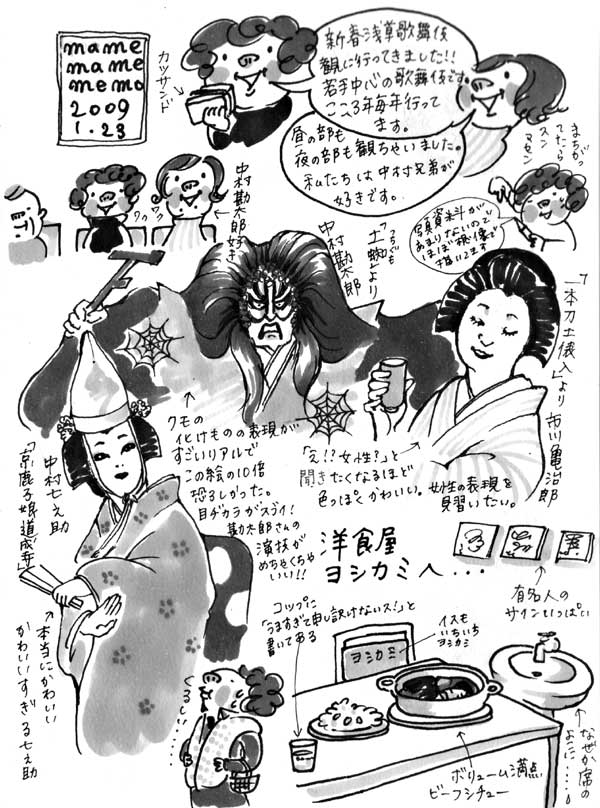 mame
mame
memo
2009
1.23
カツサンド
新春浅草歌舞伎
観に行ってきました!!
若手中心の歌舞伎です。
ここ3年毎年行って
ます。
昼の部も
夜の部も観ちゃいました。
私たちは中村兄弟が
好きです。
まちがっ
てたら
スン
マセン
写真資料が
あまりないので
ほぼ想像で
描いてます
中村勘太郎好き
「土蜘」より
つちぐも
中村勘太郎
「一本刀土俵入」より
市川亀治郎
クモの
化けものの表現が
すごいリアルで
この絵の10倍
恐ろしかった。
目ヂカラがスゴイ!
勘太郎さんの
演技が
めちゃくちゃ
いい!!
「え!?女性?」と
聞きたくなるほど
色っぽくかわいい。
女性の表現を
見習いたい。
中村七之助
「京鹿子娘道成寺」
本当にかわいい
かわいすぎる七之助
洋食屋
ヨシカミへ...
有名人の
サインいっぱい
コップに
「うますぎて申し訳けないス!」と
書いてある
ヨシカミ
イスも
いちいち
ヨシカミ
くるしい......
ボリューム満点
ビーフシチュー
なぜか席の
よこに....